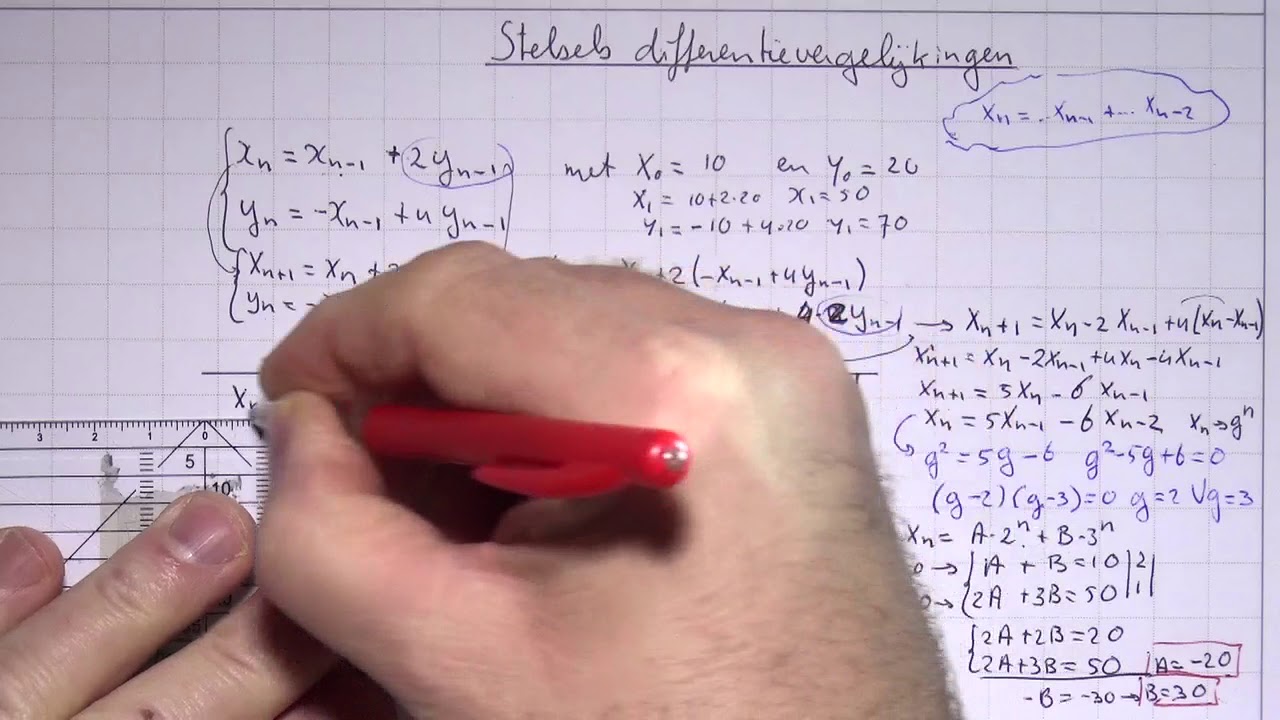 Stelsels differentievergelijkingen
xₙ = ..xₙ₋₁ +... xₙ₋₂
xₙ = xₙ₋₁ + 2yₙ₋₁ met x₀ = 10 en y₀ = 20
x₁ = 10+2·20 x₁ = 50
yₙ = -xₙ₋₁ + 4yₙ₋₁ y₁ = -10 + 4·20 y₁ = 70
xₙ₊₁ = xₙ + 2(-xₙ₋₁+4yₙ₋₁)
yₙ =
2yₙ₋₁ → xₙ₊₁ = xₙ-2xₙ₋₁+4(xₙ-xₙ₋₁)
xₙ₊₁ = xₙ -2xₙ₋₁+4xₙ-4xₙ₋₁
xₙ₊₁ = 5xₙ - 6 xₙ₋₁
xₙ = 5xₙ₋₁ - 6 xₙ₋₂ xₙ→gⁿ
g² = 5g-6 g²-5g+6=0
(g-2)(g-3)=0 g=2 V g=3
xₙ = A·2ⁿ + B·3ⁿ
→ 1A + B = 10 |2|
→ 2A + 3B = 50 |1|
2A+2B = 20
2A+3B = 50 A = -20
-B = -30 → B = 30
3 2 1 0
5
10